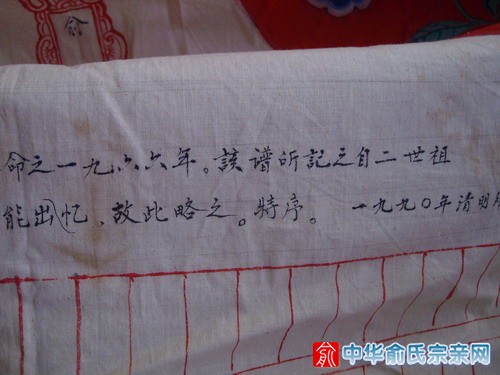 俞
命之一九六六年。該谱所記之自二世祖
能出忆，故此略之。特序。 一九九〇年清明
俞 中华俞氏宗亲网